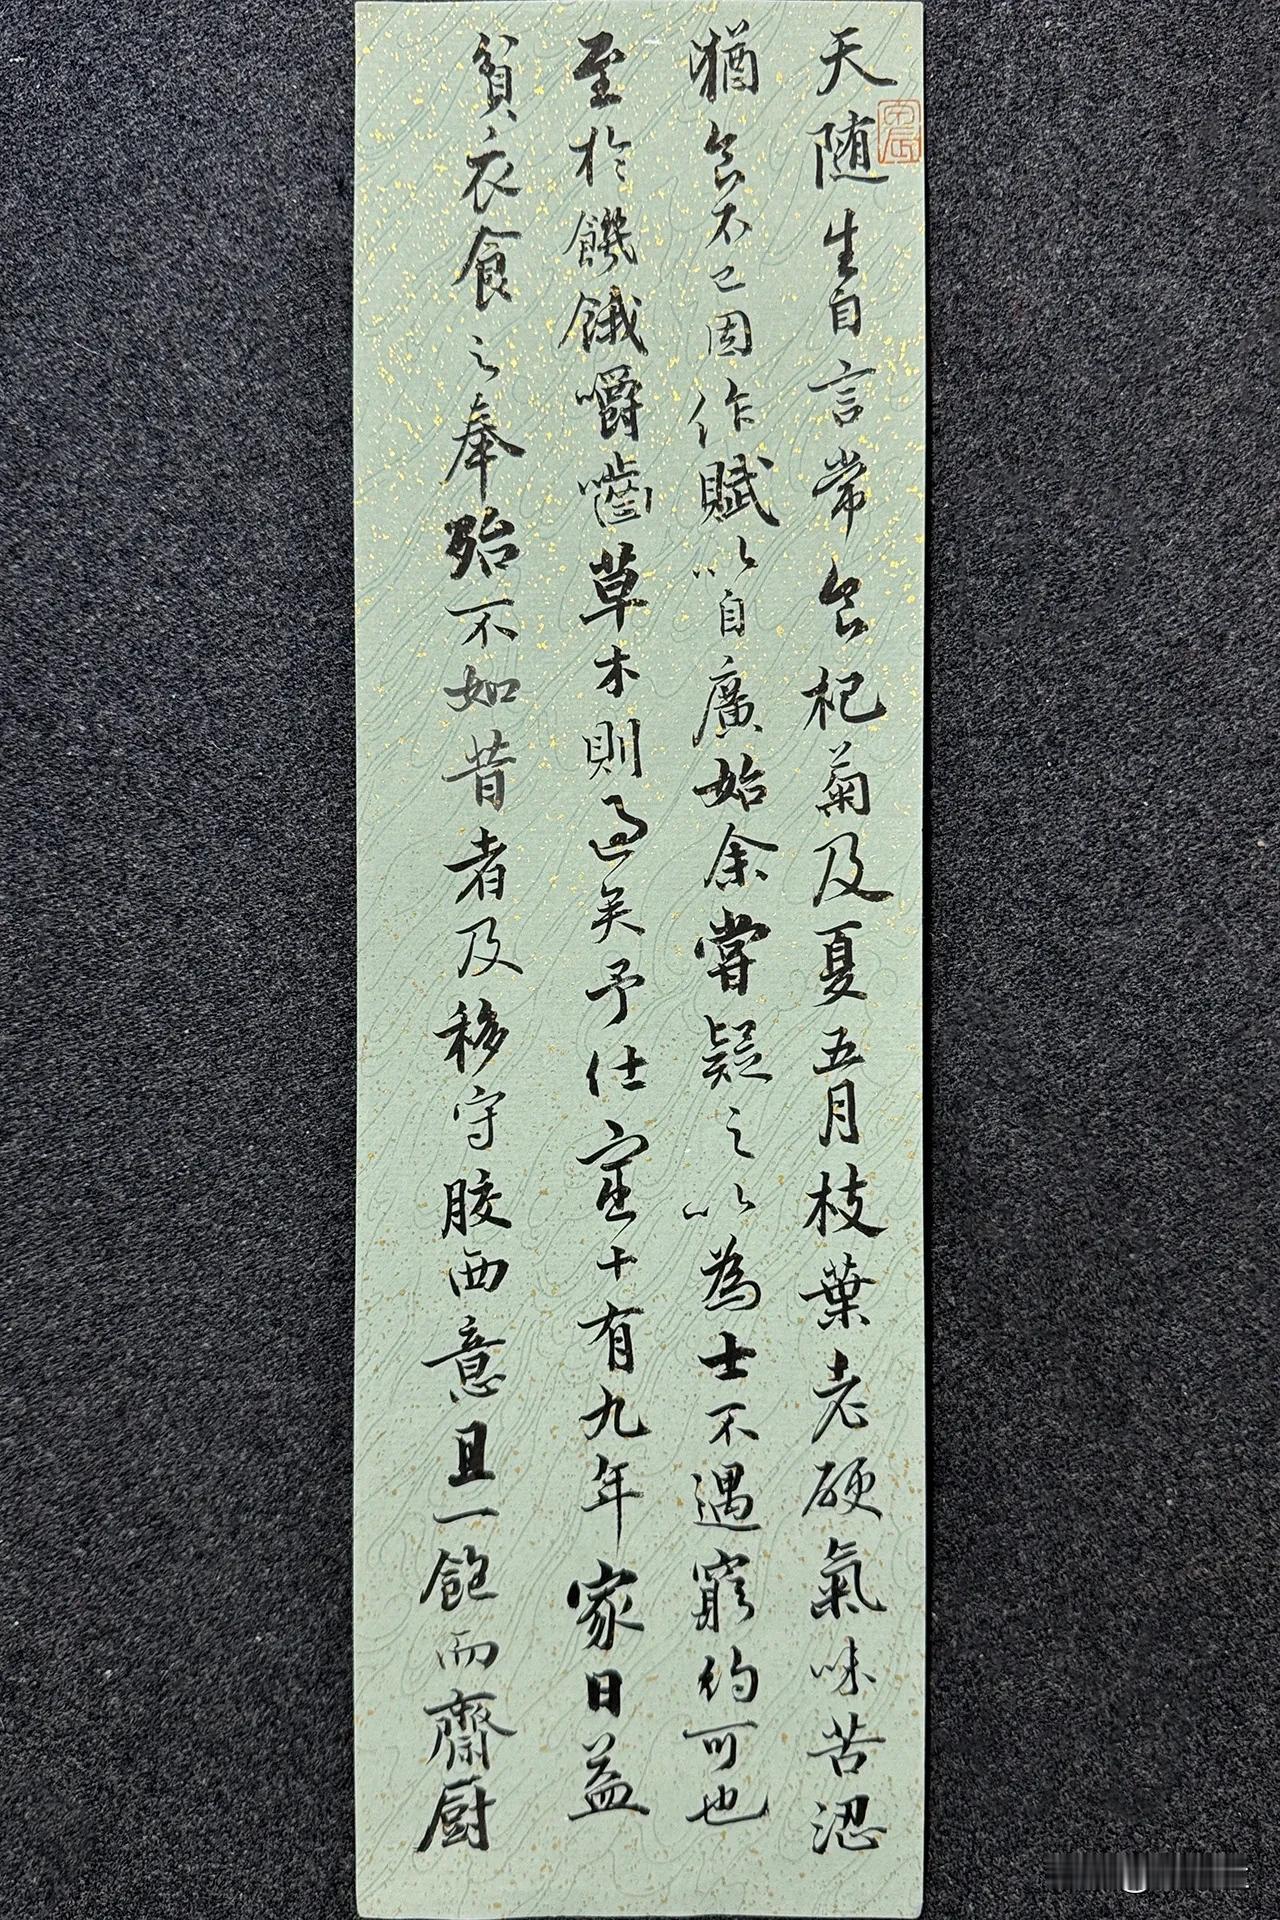 天随生自言常食杞菊及夏五月枝葉老硬氣味苦澀
猶食不已因作賦以自廣始余嘗疑之以為士不遇窮約可也
至於饑餓嚼齧草木則過矣予仕宦十有九年家日益
貧衣食之奉殆不如昔者及移守膠西意且一飽而齋厨